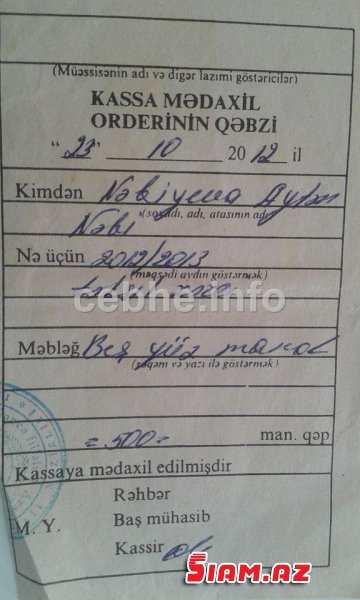 (Müəssisənin adı və digər lazımi göstəricilər)
KASSA MƏDAXİL
ORDERİNİN QƏBZİ
"23" 10 2012 il
Kimdən Nəbiyeva Aytən
Nəbi
(soyadı, adı, atasının adı
Nə üçün 2012/2013
(məqsədi aydın göstərmək)
təhsil
cebhe.info
Məbləğ Beş yüz manat
(rəqəm və yazı ilə göstərmək)
=500= man. qəp
Kassaya mədaxil edilmişdir
Rəhbər
M. Y. Baş mühasib
Kassir
SIAM.AZ